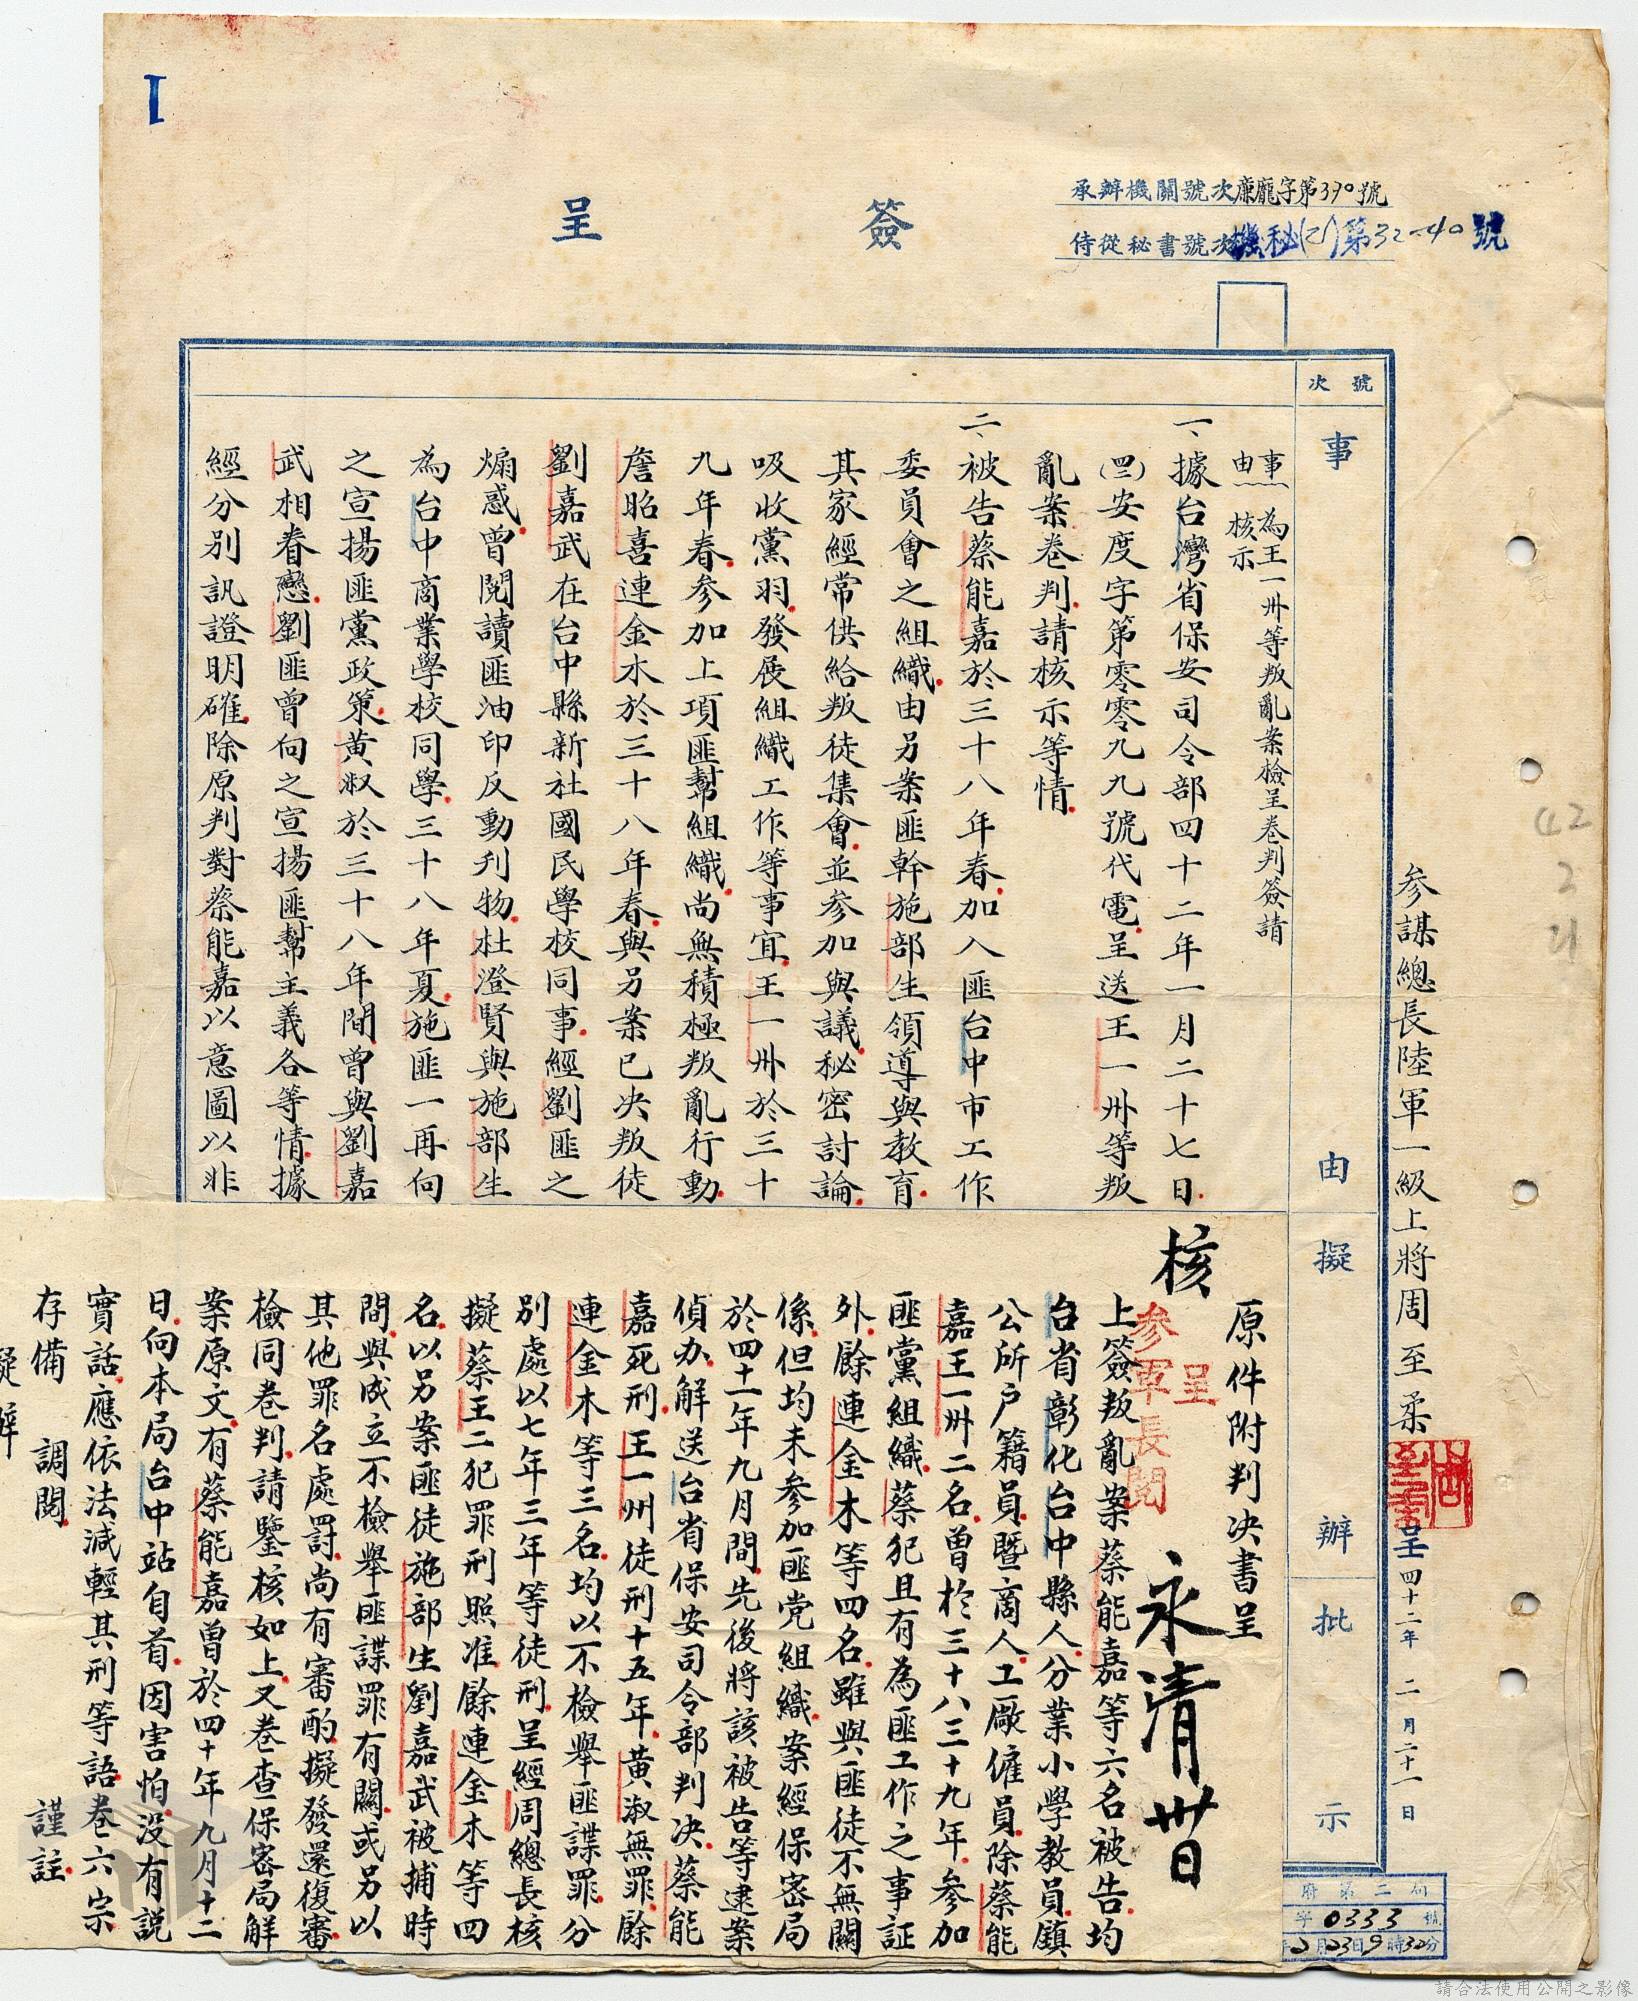 簽呈
承辦機關號次廉龐字第390號
侍從秘書號次機秘(乙)第32-40號
參謀總長陸軍一級上將周至柔
呈四十二年二月二十一日
42
2
21
號次
事由擬辦批示
事由
為王一卅等叛亂案檢呈卷判簽請
核示
一、據台灣省保安司令部四十二年一月二十七日
(四二)安度字第零零九九號代電呈送王一卅等叛
亂案卷判請核示等情
二、被告蔡能嘉於三十八年春加入匪台中市工作
委員會之組織由另案匪幹施部生領導與教育
其家經常供給叛徒集會並參加與議秘密討論
吸收黨羽發展組織工作等事宜王一卅於三十
九年春參加上項匪幫組織尚無積極叛亂行動
詹昭喜連金水於三十八年春與另案已決叛徒
劉嘉武在台中縣新社國民學校同事經劉匪之
煽惑曾閱讀匪油印反動刋物杜澄賢與施部生
為台中商業學校同學三十八年夏施匪一再向
之宣揚匪黨政策黃淑於三十八年間曾與劉嘉
武相眷戀劉匪曾向之宣揚匪幫主義各等情據
經分別訊證明確除原判對蔡能嘉以意圖以非
原件附判決書呈
核
呈
參軍長閱
永清
上簽叛亂案蔡能嘉等六名被告均
台省彰化台中縣人分業小學教員鎮
公所戶籍員暨商人工廠僱員除蔡能
嘉王一卅二名曾於三十八三十九年參加
匪黨組織蔡犯且有為匪工作之事証
外餘連金木等四名雖與匪徒不無關
係但均未參加匪党組織案經保密局
於四十一年九月間先後將該被告等逮案
偵办解送台省保安司令部判决蔡能
嘉死刑王一州徒刑十五年黃淑無罪餘
連金木等三名均以不檢舉匪諜罪分
別處以七年三年等徒刑呈經周總長核
擬蔡王二犯罪刑照准餘連金木等四
名以另案匪徒施部生劉嘉武被捕時
間與成立不檢舉匪諜罪有關或另以
其他罪名處罰尚有審酌擬發還復審
檢同卷判請鑒核如上又卷查保密局解
案原文有蔡能嘉曾於四十年九月十二
日向本局台中站自首因害怕沒有說
實話應依法減輕其刑等語卷六宗
存備調閱謹註
擬辦
府第二局
字0333號
2月23日9時32分
I
請合法使用公開之影像